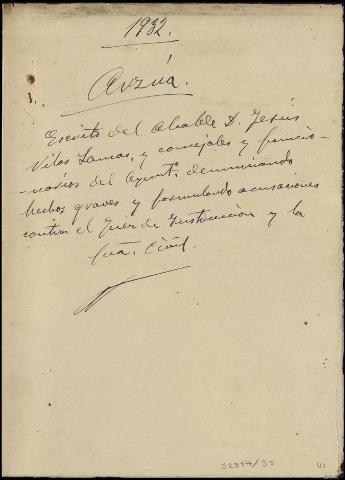 1932.
Arzúa.
Escrito del Alcalde D. Jesús
Vilas Lamas, y concejales y funcio-
-narios del Ayuntº. denunciando
hechos graves y formulando acusaciones
contra el Juez de Instrucción y la
Gua. Civil.
32397/53